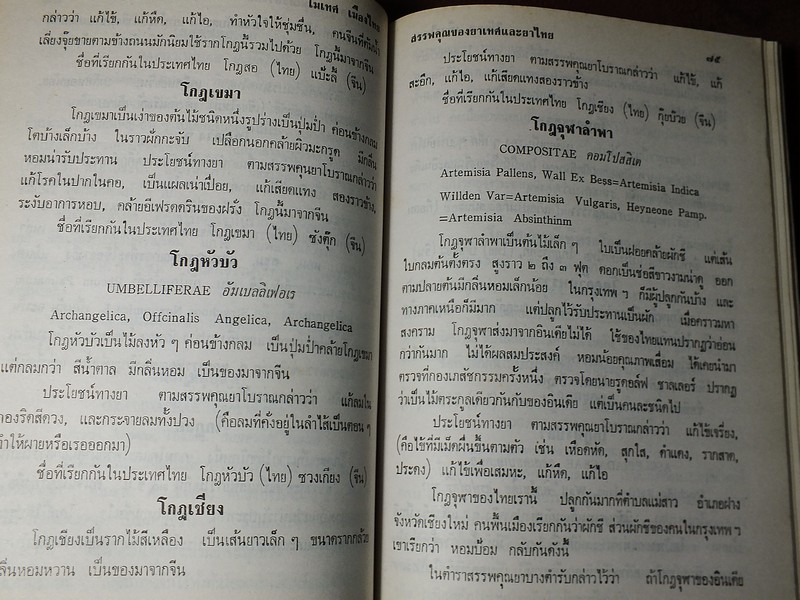 ไม้เทศ เมืองไทย
กล่าวว่า แก้ไข้, แก้หืด, แก้ไอ, ทำหัวใจให้ชุ่มชื่น, คนจีนที่ต้มน้ำ
เลี่ยงจุ๊ยขายตามข้างถนนมักนิยมใช้รากโกฎนี้รวมไปด้วย โกฎนี้มาจากจีน
ชื่อที่เรียกกันในประเทศไทย โกฎสอ (ไทย) แป๊ะลี้ (จีน)
โกฎเขมา
โกฎเขมาเป็นเง่าของต้นไม้ชนิดหนึ่งรูปร่างเป็นปุ่มป่ำ ค่อนข้างกลม
โตบ้างเล็กบ้าง ในราวผักกะจับ เปลือกนอกคล้ายผิวมะกรูด มีกลิ่น
หอมน่ารับประทาน ประโยชน์ทางยา ตามสรรพคุณยาโบราณกล่าวว่า
แก้โรคในปากในคอ, เป็นแผลเน่าเปื่อย, แก้เสียดแทง สองราวข้าง,
ระงับอาการหอบ, คล้ายอีเฟรดดรินของฝรั่ง โกฎนี้มาจากจีน
ชื่อที่เรียกกันในประเทศไทย โกฎเขมา (ไทย) ซังตุ๊ก (จีน)
โกฎหัวบัว
UMBELLIFERAE อัมเบลลิเฟอเร
Archangelica, Offcinalis Angelica, Archangelica
โกฎหัวบัวเป็นไม้ลงหัว ๆ ค่อนข้างกลม เป็นปุ่มป่ำคล้ายโกฎเขมา
แต่กลมกว่า สีน้ำตาล มีกลิ่นหอม เป็นของมาจากจีน
ประโยชน์ทางยา ตามสรรพคุณยาโบราณกล่าวว่า แก้ลมใน
กองริดสีดวง, และกระจายลมทั้งปวง (คือลมที่คั่งอยู่ในลำไส้เป็นตอน ๆ
ทำให้ผายหรือเรอออกมา)
ชื่อที่เรียกกันในประเทศไทย โกฎหัวบัว (ไทย) ชวงเกียง (จีน)
โกฎเชียง
โกฎเชียงเป็นรากไม้สีเหลือง เป็นเส้นยาวเล็ก ๆ ขนาดรากกล้วย
กลิ่นหอมหวาน เป็นของมาจากจีน
สรรพคุณของยาเทศและยาไทย ๗๕
ประโยชน์ทางยา ตามสรรพคุณยาโบราณกล่าวว่า แก้ไข้, แก้
สะอึก, แก้ไอ, แก้เสียดแทงสองราวข้าง
ชื่อที่เรียกกันในประเทศไทย โกฎเชียง (ไทย) กุ๊ยบ๊วย (จีน)
โกฎจุฬาลำพา
COMPOSITAE คอมโปสสิเต
Artemisia Pallens, Wall Ex Bess=Artemisia Indica
Willden Var=Artemisia Vulgaris, Heyneone Pamp.
=Artemisia Absinthinm
โกฎจุฬาลำพาเป็นต้นไม้เล็ก ๆ ใบเป็นฝอยคล้ายผักชี แต่เส้น
ใบกลมต้นตั้งตรง สูงราว ๒ ถึง ๓ ฟุต ดอกเป็นช่อสีขาวงามน่าดู ออก
ตามปลายต้นมีกลิ่นหอมเล็กน้อย ในกรุงเทพ ฯ ก็มีผู้ปลูกกันบ้าง และ
ทางภาคเหนือก็มีมาก แต่ปลูกไว้รับประทานเป็นผัก เมื่อคราวมหา
สงคราม โกฎจุฬาส่งมาจากอินเดียไม่ได้ ใช้ของไทยแทนปรากฏว่าอ่อน
กว่ากันมาก ไม่ได้ผลสมประสงค์ หอมน้อยคุณภาพเสื่อม ได้เคยนำมา
ตรวจที่กองเภสัชกรรมครั้งหนึ่ง ตรวจโดยนายรูดอล์ฟ ชาลเลอร์ ปรากฏ
ว่าเป็นไม้ตระกูลเดียวกันกับของอินเดีย แต่เป็นคนละชนิดไป
ประโยชน์ทางยา ตามสรรพคุณยาโบราณกล่าวว่า แก้ไข้เจรียง,
(คือไข้ที่มีเม็ดผื่นขึ้นตามตัว เช่น เหือดหัด, สุกใส, ดำแดง, รากสาด,
ประดง) แก้ไข้เพื่อเสมหะ, แก้หืด, แก้ไอ
โกฎจุฬาของไทยเรานี้ ปลูกกันมากที่ตำบลแม่สาว อำเภอฝาง
จังหวัดเชียงใหม่ คนพื้นเมืองเรียกกันว่าผักชี ส่วนผักชีของคนในกรุงเทพ ฯ
เขาเรียกว่า หอมป้อม กลับกันดังนี้
ในตำราสรรพคุณยาบางตำรับกล่าวไว้ว่า ถ้าโกฎจุฬาของอินเดีย